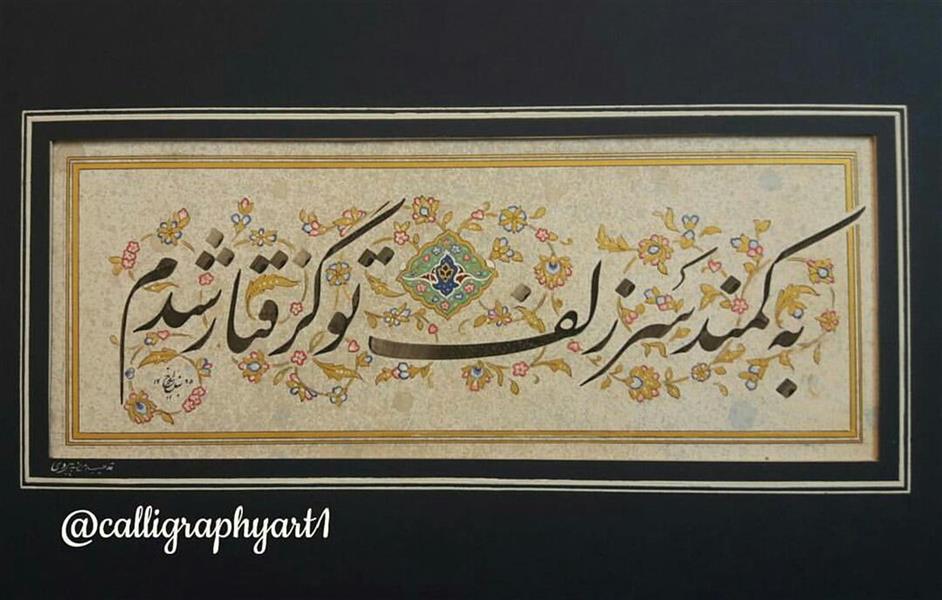 به کمند سر زلف تو گرفتار شدم
@calligraphyart1